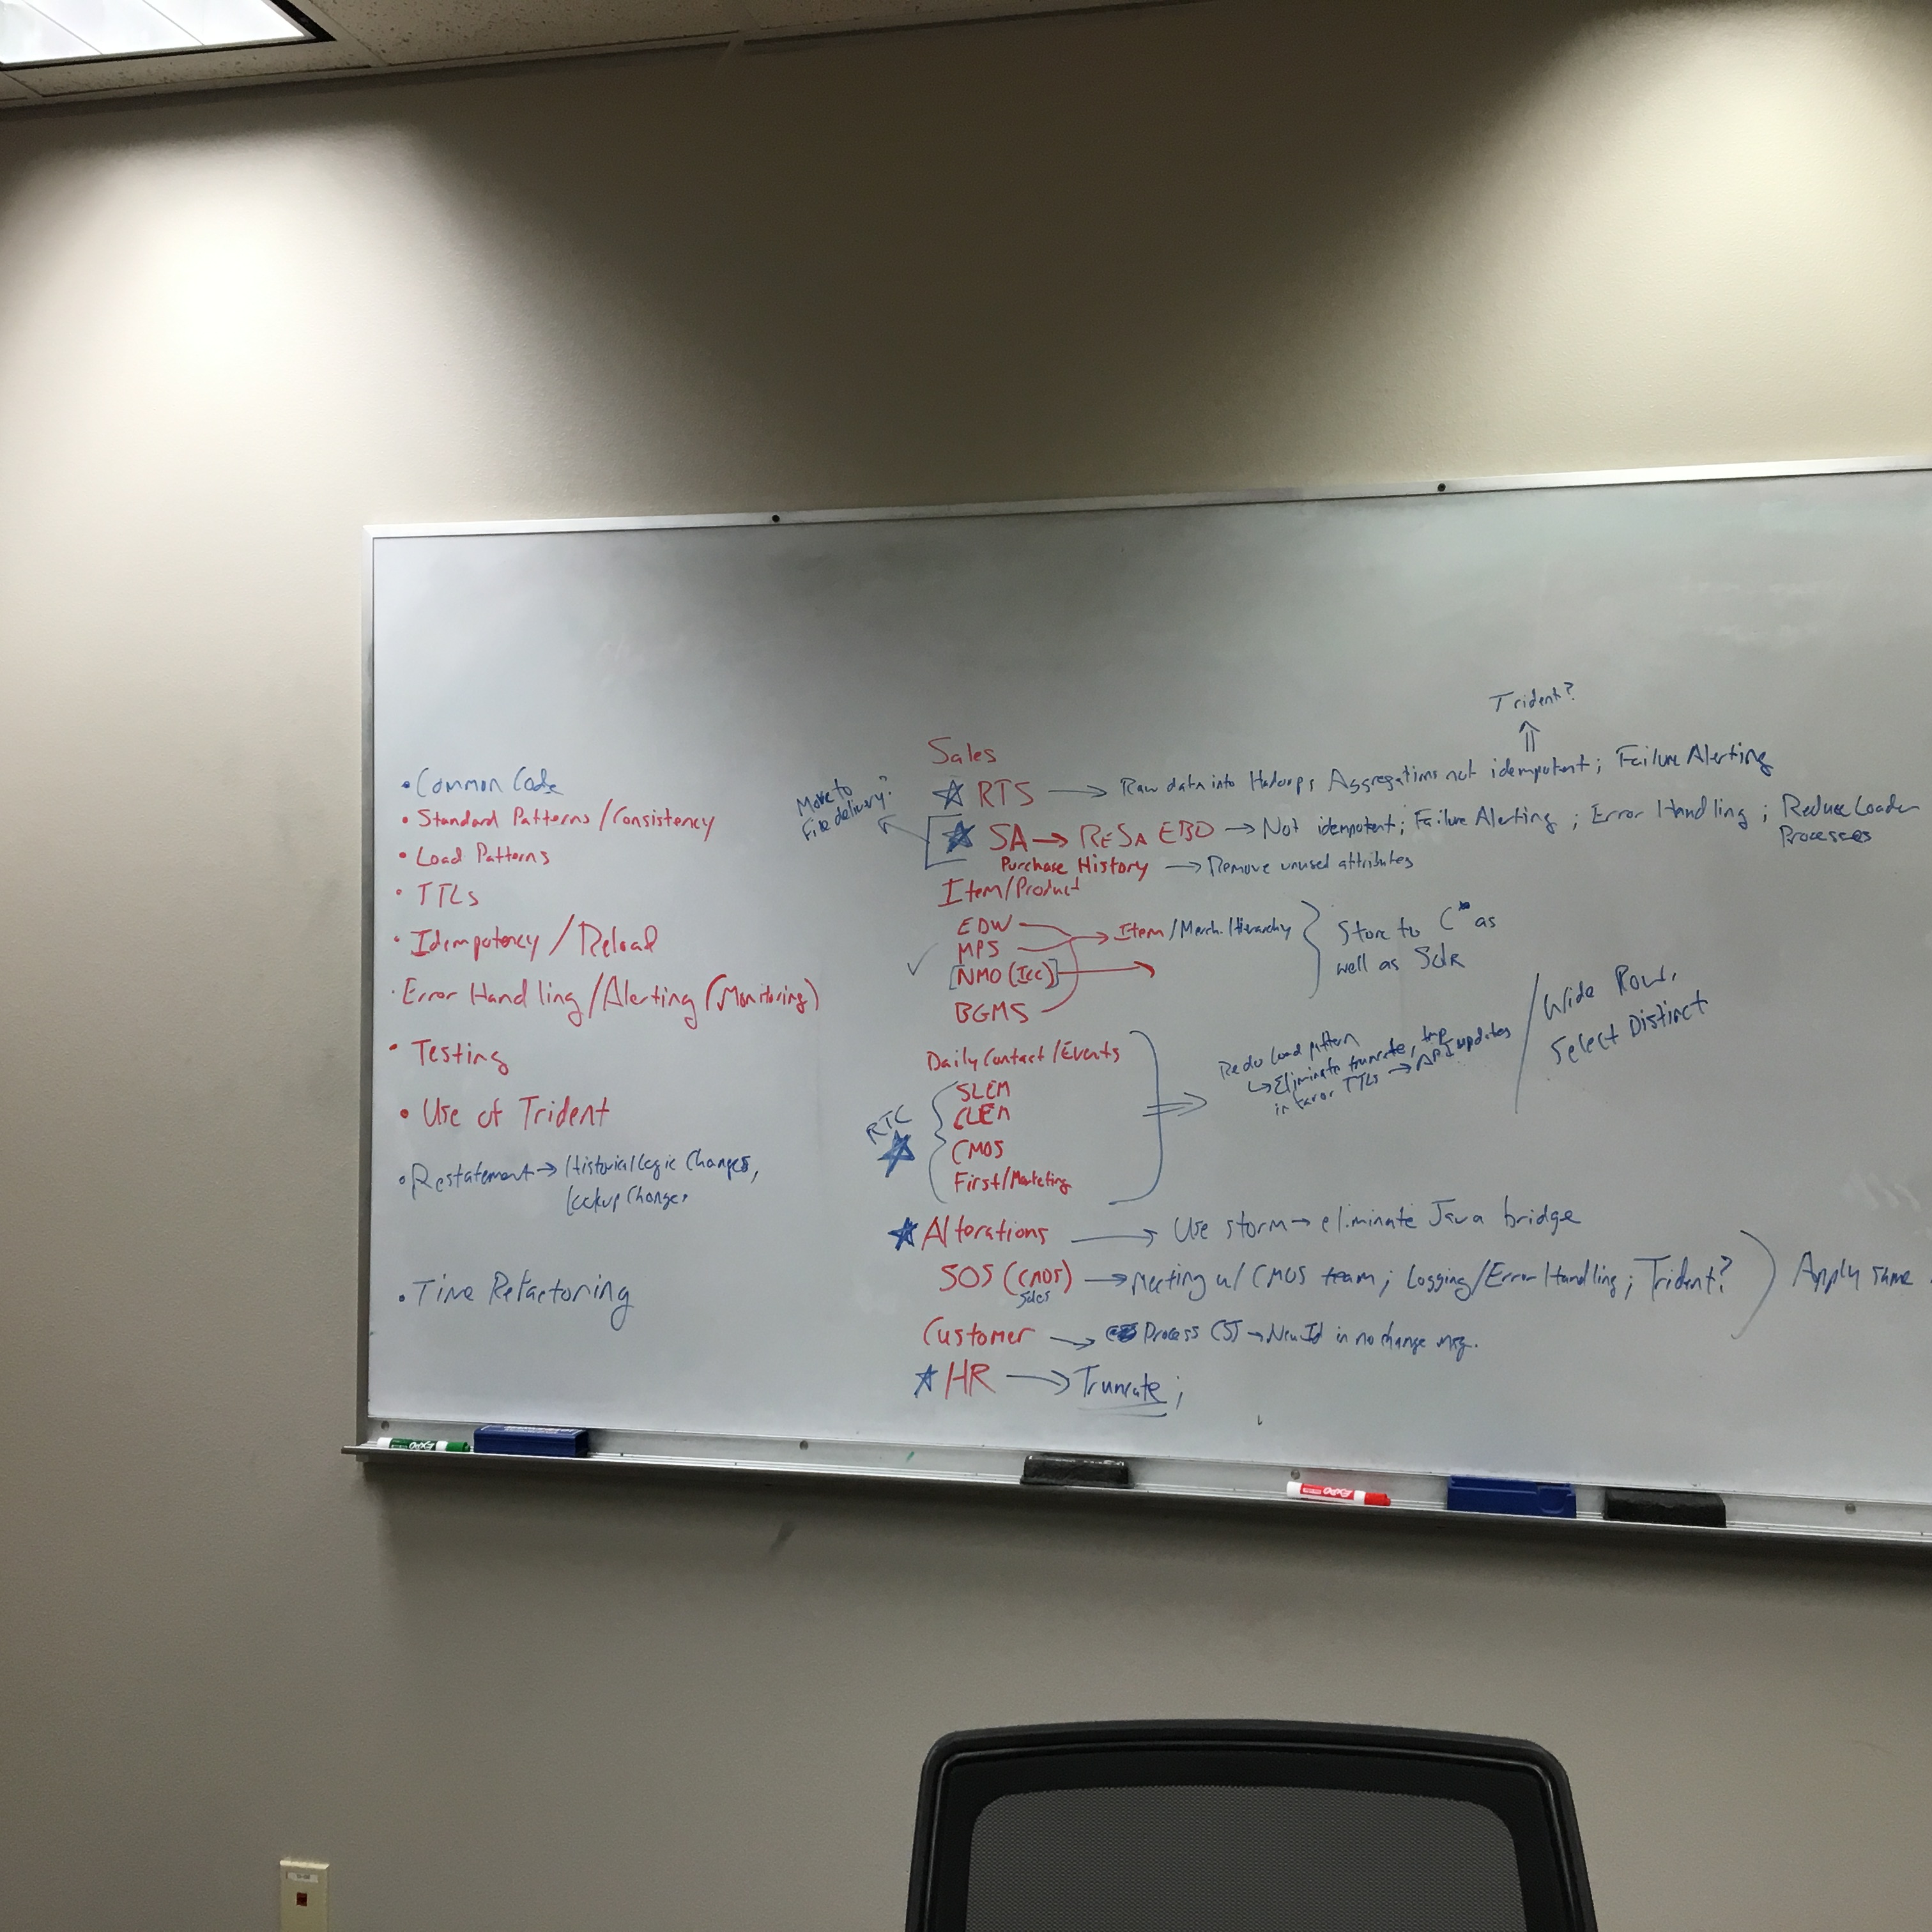 • Common Code
• Standard Patterns/Consistency
• Load Patterns
• TTLs
• Idempotency/Reload
• Error Handling/Alerting (Monitoring)
• Testing
• Use of Trident
• Restatement → Historical logic changes,
lookup changes
• Time Refactoring
Trident?
Sales
Move to
File delivery?
☆ RTS → Raw data into Hadoop; Aggregations not idempotent; Failure Alerting
★ SA → RESA EBD → Not idempotent; Failure Alerting; Error Handling; Reduce Loader
Processes
Purchase History → Remove unused attributes
Item/Product
EDW
MPS → Item/Merch. Hierarchy
✓ [NMO (Icc)] →
BGMS
Store to C* as
well as Solr
Daily Contact/Events
SLEM
CLEM
CMOS
First/Marketing
RTC
★
Redo load pattern
↳ Eliminate truncate, tmp
in favor TTLs → API updates
Wide Row,
Select Distinct
★ Alterations → Use storm → eliminate Java bridge
SOS (CMOS) → Meeting w/ CMOS team; Logging/Error Handling; Trident?
Sales
Apply same
Customer → Process CSJ → New Id in no change msg.
☆ HR → Truncate;
EXPO
EXPO